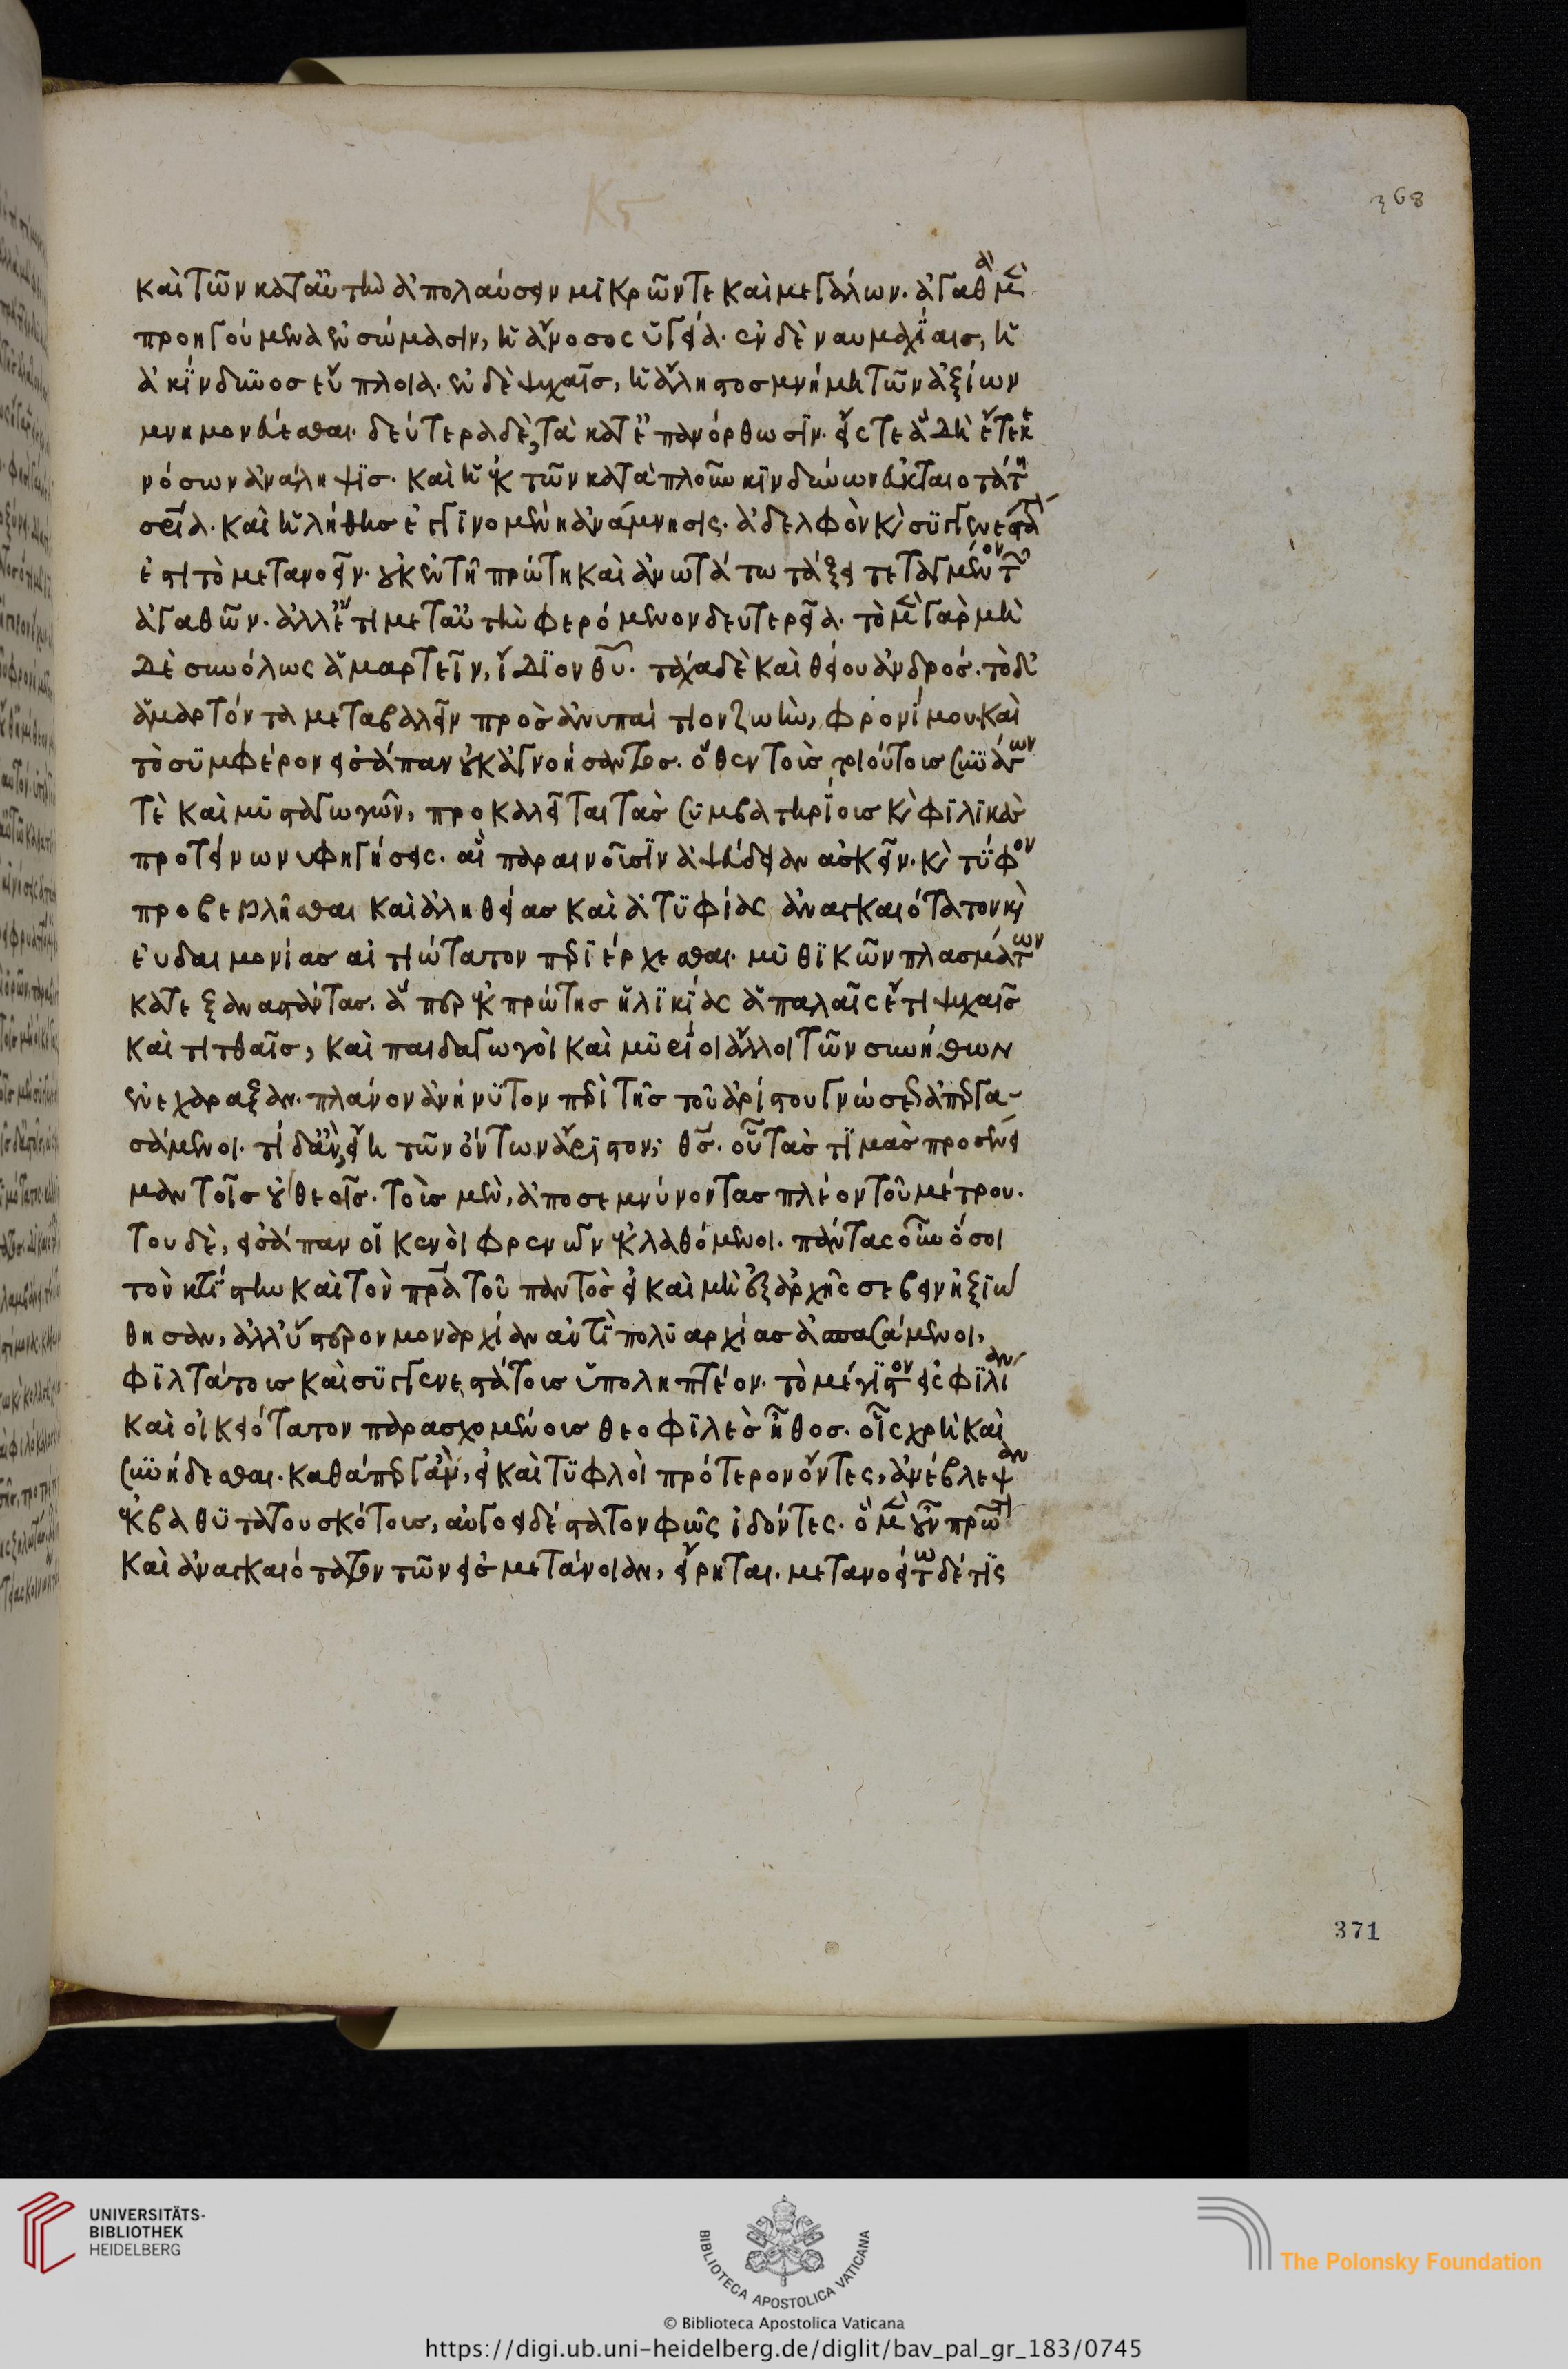 καὶ τῶν κατ' αὐτὴν ἀπολαύσειν μικρῶν τε καὶ μεγάλων. ἀγαθὰ μὲν
προηγούμενα ἐν σώμασιν, ἡ ἄνοσος ὑγεία. ἐν δὲ ναυμαχίαις, ἡ
ἀκίνδυνος εὔπλοια. ἐν δὲ ψυχαῖς, ἡ ἄληστος μνήμη τῶν ἀξίων
μνημονεύεσθαι. δεύτερα δὲ, τὰ κατ' ἐπανόρθωσιν.
νόσων ἀνάληψις. καὶ ἡ ἐκ τῶν κατὰ πλοῦν κινδύνων εὐκταιοτάτη
σωτηρία. καὶ ἡ λήθης ἐπιγινομένη ἀνάμνησις. ἀδελφὸν καὶ συγγενέστατον
ἐστι τὸ μετανοεῖν. οὐκ ἐν τῇ πρώτῃ καὶ ἀνωτάτω τάξει τεταγμένον τῶν
ἀγαθῶν. ἀλλ' ἔν τῇ μετ' αὐτὴν φερόμενον δευτερεῖα. τὸ μὲν γὰρ μὴ
δὲ συνόλως ἁμαρτεῖν, ἴδιον θυ. τάχα δὲ καὶ θείου ἀνδρός. τὸ δὲ
ἁμαρτόντα μεταβαλεῖν πρὸς ἀνυπαίτιον ζωὴν, φρονίμου καὶ
τὸ συμφέρον εἰσάπαν οὐκ ἀγνοήσαντος. ὅθεν τοὺς τοιούτους συνάγων
τὲ καὶ μυσταγωγῶν, προκαλεῖται τὰς συμβατηρίους καὶ φιλικὰς
προτείνων ὑφηγήσεις. αἳ παραινοῦσιν ἀψεύδειαν ἀσκεῖν. καὶ τύφον
προβεβλῆσθαι καὶ ἀληθείας καὶ ἀτυφίας ἀναγκαιότατον καὶ
εὐδαιμονίας αἰτιώτατον περιέρχεσθαι. μυθικῶν πλασμάτων
κατεξαναστάντας. ἅπερ ἐκ πρώτης ἡλικίας ἁπαλαῖς ἔτι ψυχαῖς
καὶ τιτθαῖς, καὶ παιδαγωγοὶ καὶ μυρίοι ἄλλοι τῶν συνήθων
ἐνεχάραξαν. πλάνον ἀνήνυτον περὶ τῆς τοῦ ἀρίστου γνώσεως ἀπεργα-
σάμενοι. τί δ' ἂν, εἴη τῶν ὄντων ἄριστον; θς. οὗ τὰς τιμὰς προσένει
μαν τοῖς οὐ θεοῖς. τοὺς μὲν, ἀποσεμνύνοντας πλέον τοῦ μέτρου.
του δὲ, εἰσάπαν οἱ κενοὶ φρενῶν ἐκλαθόμενοι. πάντας οὖν ὅσοι
τὸν κτίστην καὶ τὸν πρα τοῦ παντὸς εἰ καὶ μὴ ἐξ ἀρχῆς σέβειν ἠξιώ
θησαν, ἀλλ' ὕστερον μοναρχίαν ἀντὶ πολυαρχίας ἀσπασάμενοι,
φιλτάτους καὶ συγγενεστάτους ὑποληπτέον. τὸ μέγιστον εἰς φιλίαν
καὶ οἰκειότατον παρασχομένους θεοφιλὲς ἦθος. οἷς χρὴ καὶ
συνήδεσθαι. καθάπερ γὰν, εἰ καὶ τυφλοὶ πρότερον ὄντες, ἀνέβλεψαν
ἐκ βαθυτάτου σκότους, αὐγοειδέστατον φῶς ἰδόντες. ὃ μὲν οὖν πρῶτον
καὶ ἀναγκαιότατον τῶν εἰς μετάνοιαν, εἴρηται. μετανοείτω δέ τις
368
371
UNIVERSITÄTS-
BIBLIOTHEK
HEIDELBERG
BIBLIOTECA APOSTOLICA VATICANA
The Polonsky Foundation
© Biblioteca Apostolica Vaticana
https://digi.ub.uni-heidelberg.de/diglit/bav_pal_gr_183/0745